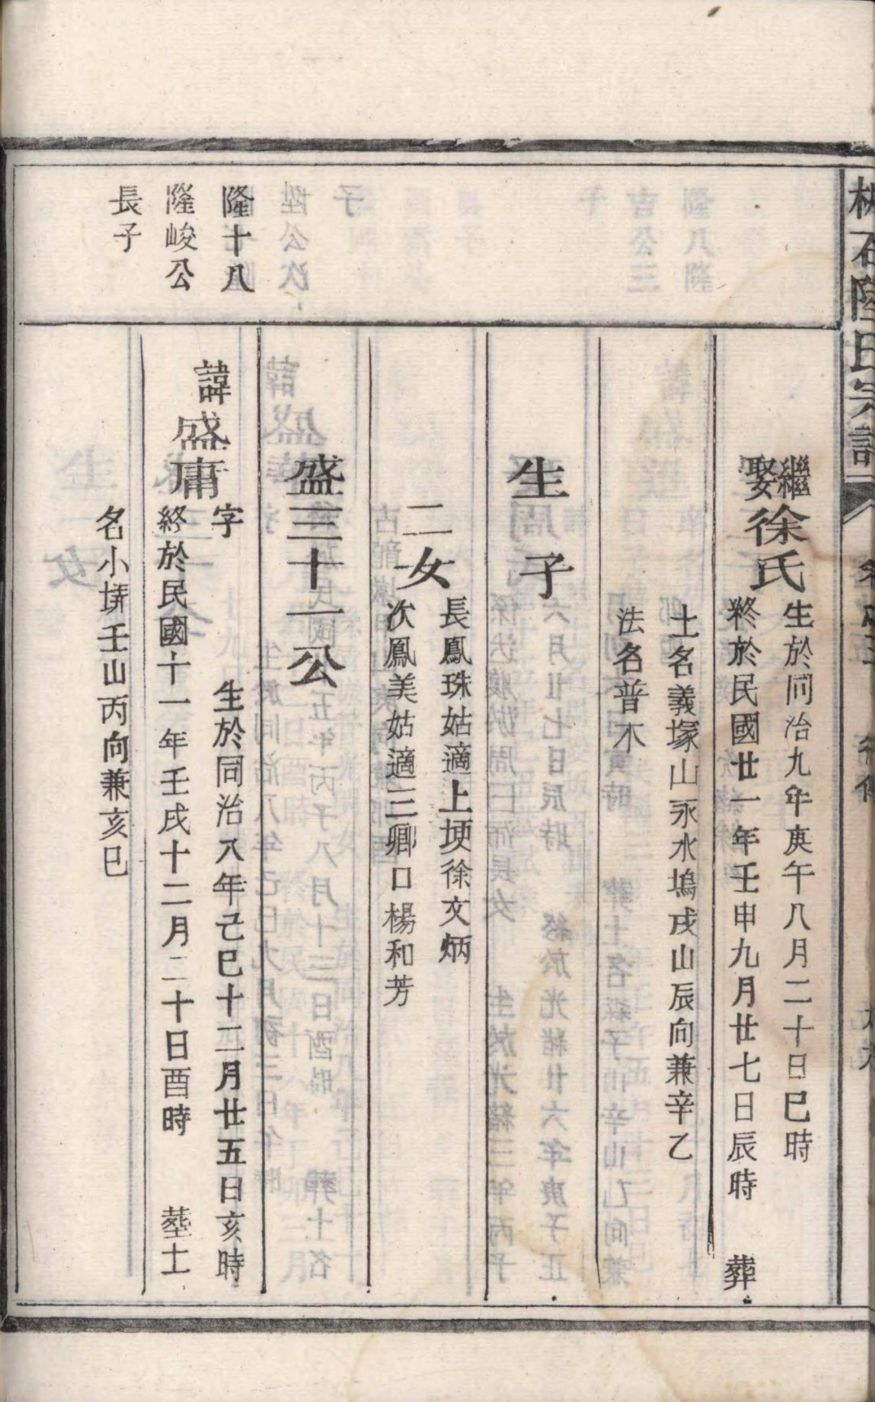 石陸氏宗譜
繼娶徐氏
生於同治九年庚午八月二十日巳時
終於民國廿一年壬申九月廿七日辰時 葬
土名義塚山永水塢戌山辰向兼辛乙
法名普木
生 子
二女
長鳳珠姑適上埂徐文炳
次鳳美姑適三卿口楊和芳
盛三十一公
隆十八
隆峻公
長子
諱盛庸
字 生於同治八年己巳十二月廿五日亥時
終於民國十一年壬戌十二月二十日酉時 塟土
名小塝壬山丙向兼亥巳